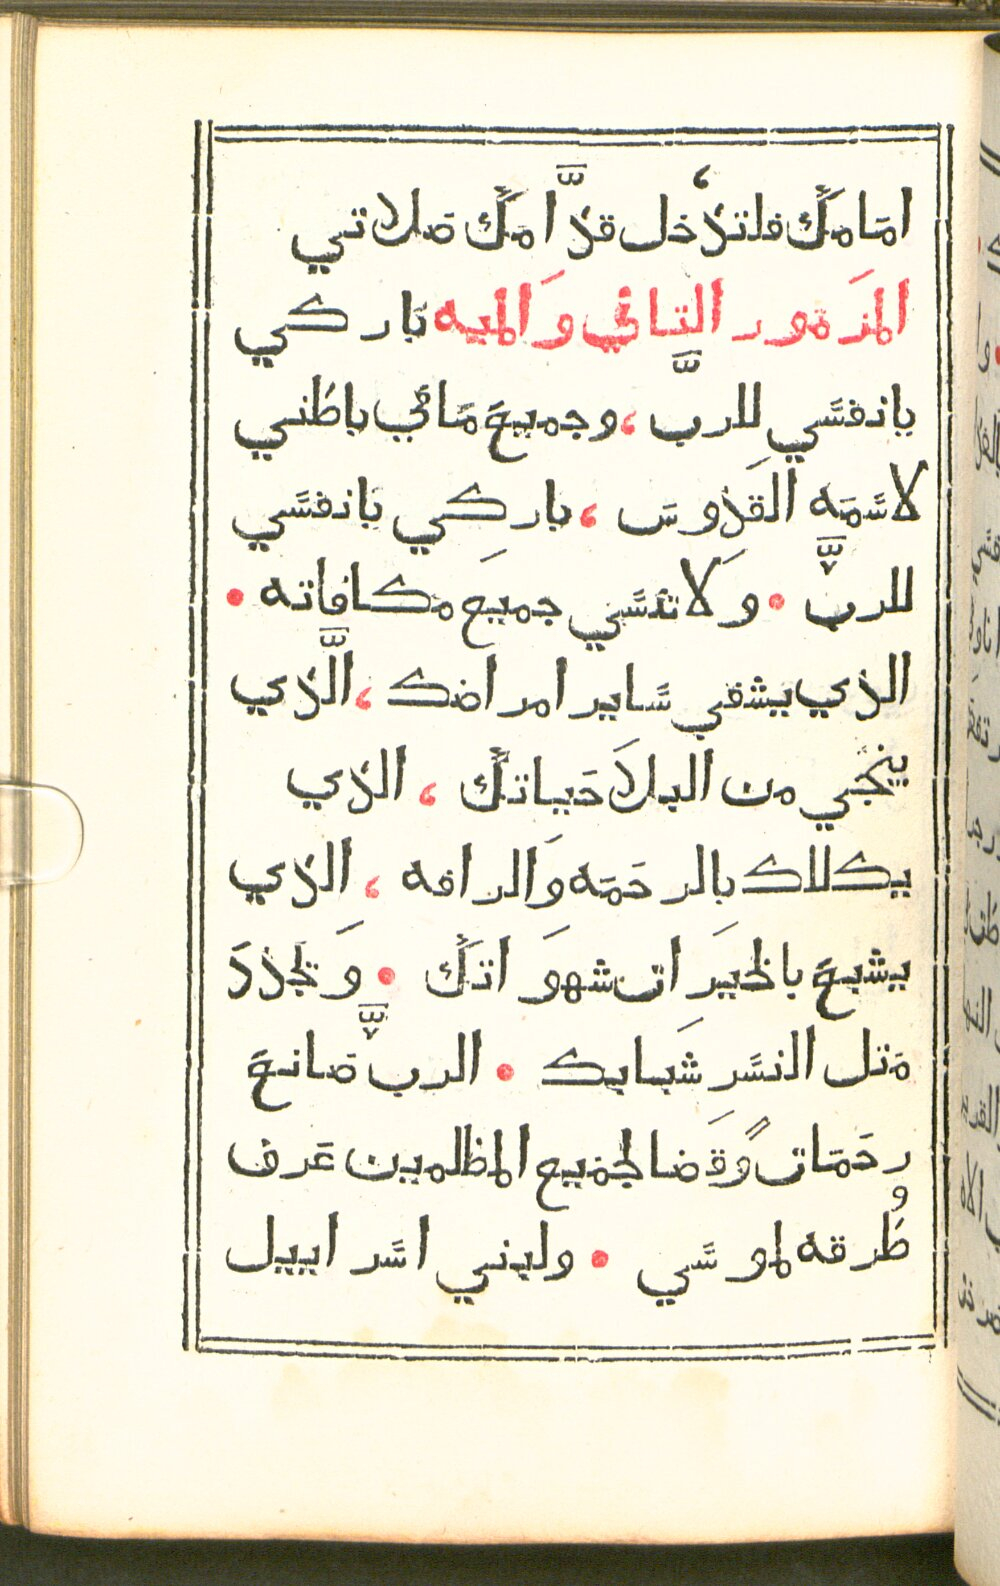 امَامَكَ فلتدْخل قدَّامَكَ صَلاتي
المَزمَور التاني وَالميه بَاركي
يانفسَي للرب، وجميعَ مَافي باطَني
لاسَمَه القَدوسَ ، باركي يَانفسَي
للربّ • وَلاتنسَي جميعَ مكافاته •
الذي يشفي سَاير امراضك ، الَّذي
ينجَي من البلاَ حَياتكَ ، الذي
يكللك بالرحَمَه وَالرافه ، الذي
يشبعَ بالخيَرات شهوَاتكَ • وَتجَددَ
مَتل النسَر شَبابك • الربّ صَانعَ
رحَمَات وًقَضا لجَميع المظلمين عَرف
طُرقه لموسَي • ولبني اسَراييل